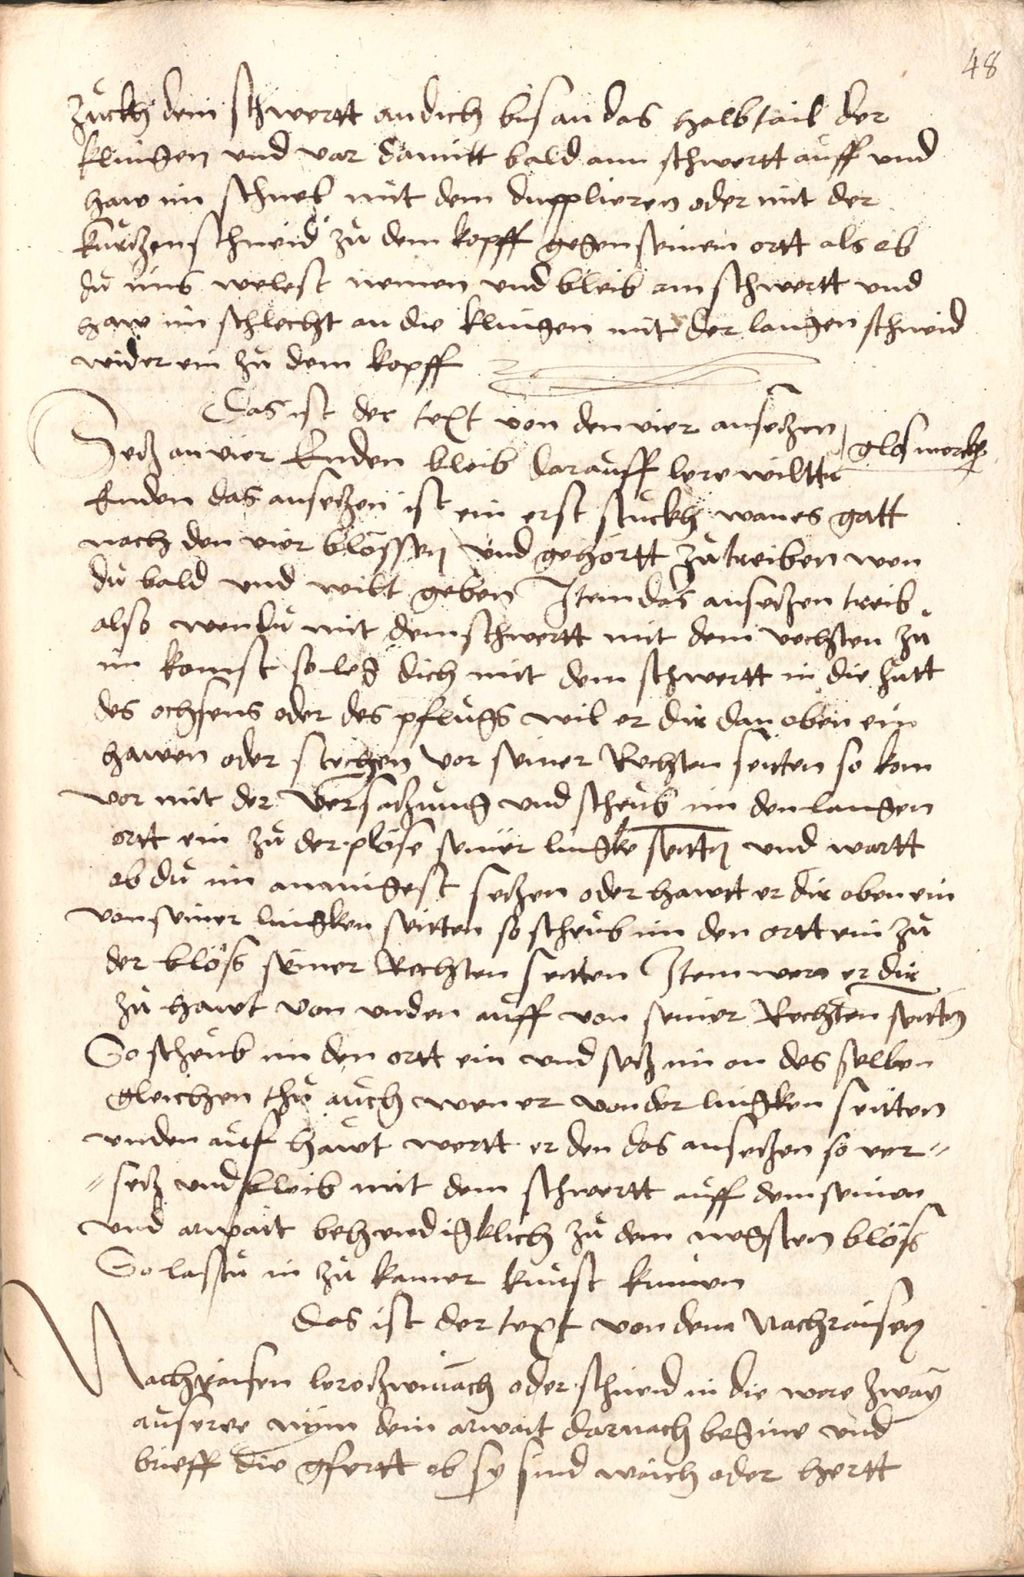 48
zuckh dein schwertt an dich bis an das halb tail der
klingen und var damitt bald ann schwertt auff und
haw im schnel mit dem dupplieren oder mit der
kurczen schneid zu dem kopff gegen seinem ortt als ob
du ims welest nemen und bleib am schwertt und
haw im schlecht an die klingen mit der langen schneid
wider ein zu dem kopff
Das ist der text von den vier anseczen
Secz an vier Enden bleib darauff lere wiltu glos merckh
Enden das anseczen ist ein erst stuckh wan es gatt
nach den vier blössen und gehörtt zu treiben wen
du bald und wilt geben Item das anseczen treib
also wen du mit dem schwertt mit dem vechten zu
im komst so leg dich mit dem schwertt in die hutt
des ochsens oder des pflugs wil er dir dan oben ein
hawen oder stechen vor seiner Rechten seitten so kom
vor mit der verseczung und scheub im den langen
ortt ein zu der plöse seiner lingke seitten und wartt
ob du im anmügest seczen oder hawtt er dir oben ein
von seiner lingken seitten so scheub im den ortt ein zu
der blöss seiner Rechten seitten Item wen er dir
zu hawt von unden auff von seiner Rechten seitten
So scheub im den ortt ein und secz im an des selben
gleichen thu auch wen er von der lingken seitten
unden auff hawt wertt er den das anseczen so ver=
=secz und bleib mit dem schwertt auff dem seinen
und arwait behendigklich zu dem negsten blöss
So lastu in zu kainer kunst kumen
Das ist der text von dem Nachraisen
Nachraisen lere zwinach oder schneid in die were zway
ausere nym dein arwait darnach begine und
brieff die gfertt ob sy sind waich oder hertt